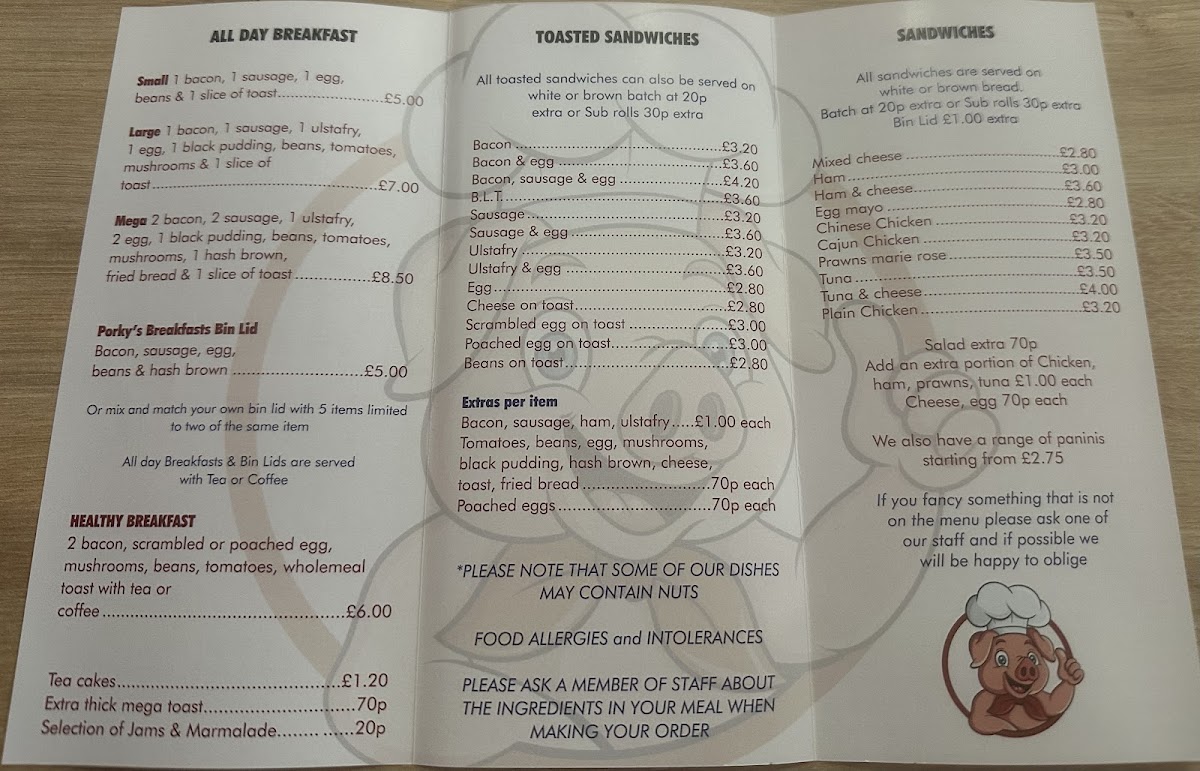 ALL DAY BREAKFAST
Small 1 bacon, 1 sausage, 1 egg,
beans & 1 slice of toast..............................£5.00
Large 1 bacon, 1 sausage, 1 ulstafry,
1 egg, 1 black pudding, beans, tomatoes,
mushrooms & 1 slice of
toast....................................................£7.00
Mega 2 bacon, 2 sausage, 1 ulstafry,
2 egg, 1 black pudding, beans, tomatoes,
mushrooms, 1 hash brown,
fried bread & 1 slice of toast.................£8.50
Porky's Breakfasts Bin Lid
Bacon, sausage, egg,
beans & hash brown.............................£5.00
Or mix and match your own bin lid with 5 items limited
to two of the same item
All day Breakfasts & Bin Lids are served
with Tea or Coffee
HEALTHY BREAKFAST
2 bacon, scrambled or poached egg,
mushrooms, beans, tomatoes, wholemeal
toast with tea or
coffee....................................................£6.00
Tea cakes................................................£1.20
Extra thick mega toast................................70p
Selection of Jams & Marmalade........ .......20p
TOASTED SANDWICHES
All toasted sandwiches can also be served on
white or brown batch at 20p
extra or Sub rolls 30p extra
Bacon....................................................£3.20
Bacon & egg...........................................£3.60
Bacon, sausage & egg.............................£4.20
B.L.T.......................................................£3.60
Sausage..................................................£3.20
Sausage & egg........................................£3.60
Ulstafry...................................................£3.20
Ulstafry & egg.........................................£3.60
Egg........................................................£2.80
Cheese on toast.......................................£2.80
Scrambled egg on toast...........................£3.00
Poached egg on toast..............................£3.00
Beans on toast.........................................£2.80
Extras per item
Bacon, sausage, ham, ulstafry.....£1.00 each
Tomatoes, beans, egg, mushrooms,
black pudding, hash brown, cheese,
toast, fried bread............................70p each
Poached eggs.................................70p each
*PLEASE NOTE THAT SOME OF OUR DISHES
MAY CONTAIN NUTS
FOOD ALLERGIES and INTOLERANCES
PLEASE ASK A MEMBER OF STAFF ABOUT
THE INGREDIENTS IN YOUR MEAL WHEN
MAKING YOUR ORDER
SANDWICHES
All sandwiches are served on
white or brown bread.
Batch at 20p extra or Sub rolls 30p extra
Bin Lid £1.00 extra
Mixed cheese..........................................£2.80
Ham.......................................................£3.00
Ham & cheese.........................................£3.60
Egg mayo...............................................£2.80
Chinese Chicken.....................................£3.20
Cajun Chicken........................................£3.20
Prawns marie rose...................................£3.50
Tuna.......................................................£3.50
Tuna & cheese.........................................£4.00
Plain Chicken..........................................£3.20
Salad extra 70p
Add an extra portion of Chicken,
ham, prawns, tuna £1.00 each
Cheese, egg 70p each
We also have a range of paninis
starting from £2.75
If you fancy something that is not
on the menu please ask one of
our staff and if possible we
will be happy to oblige